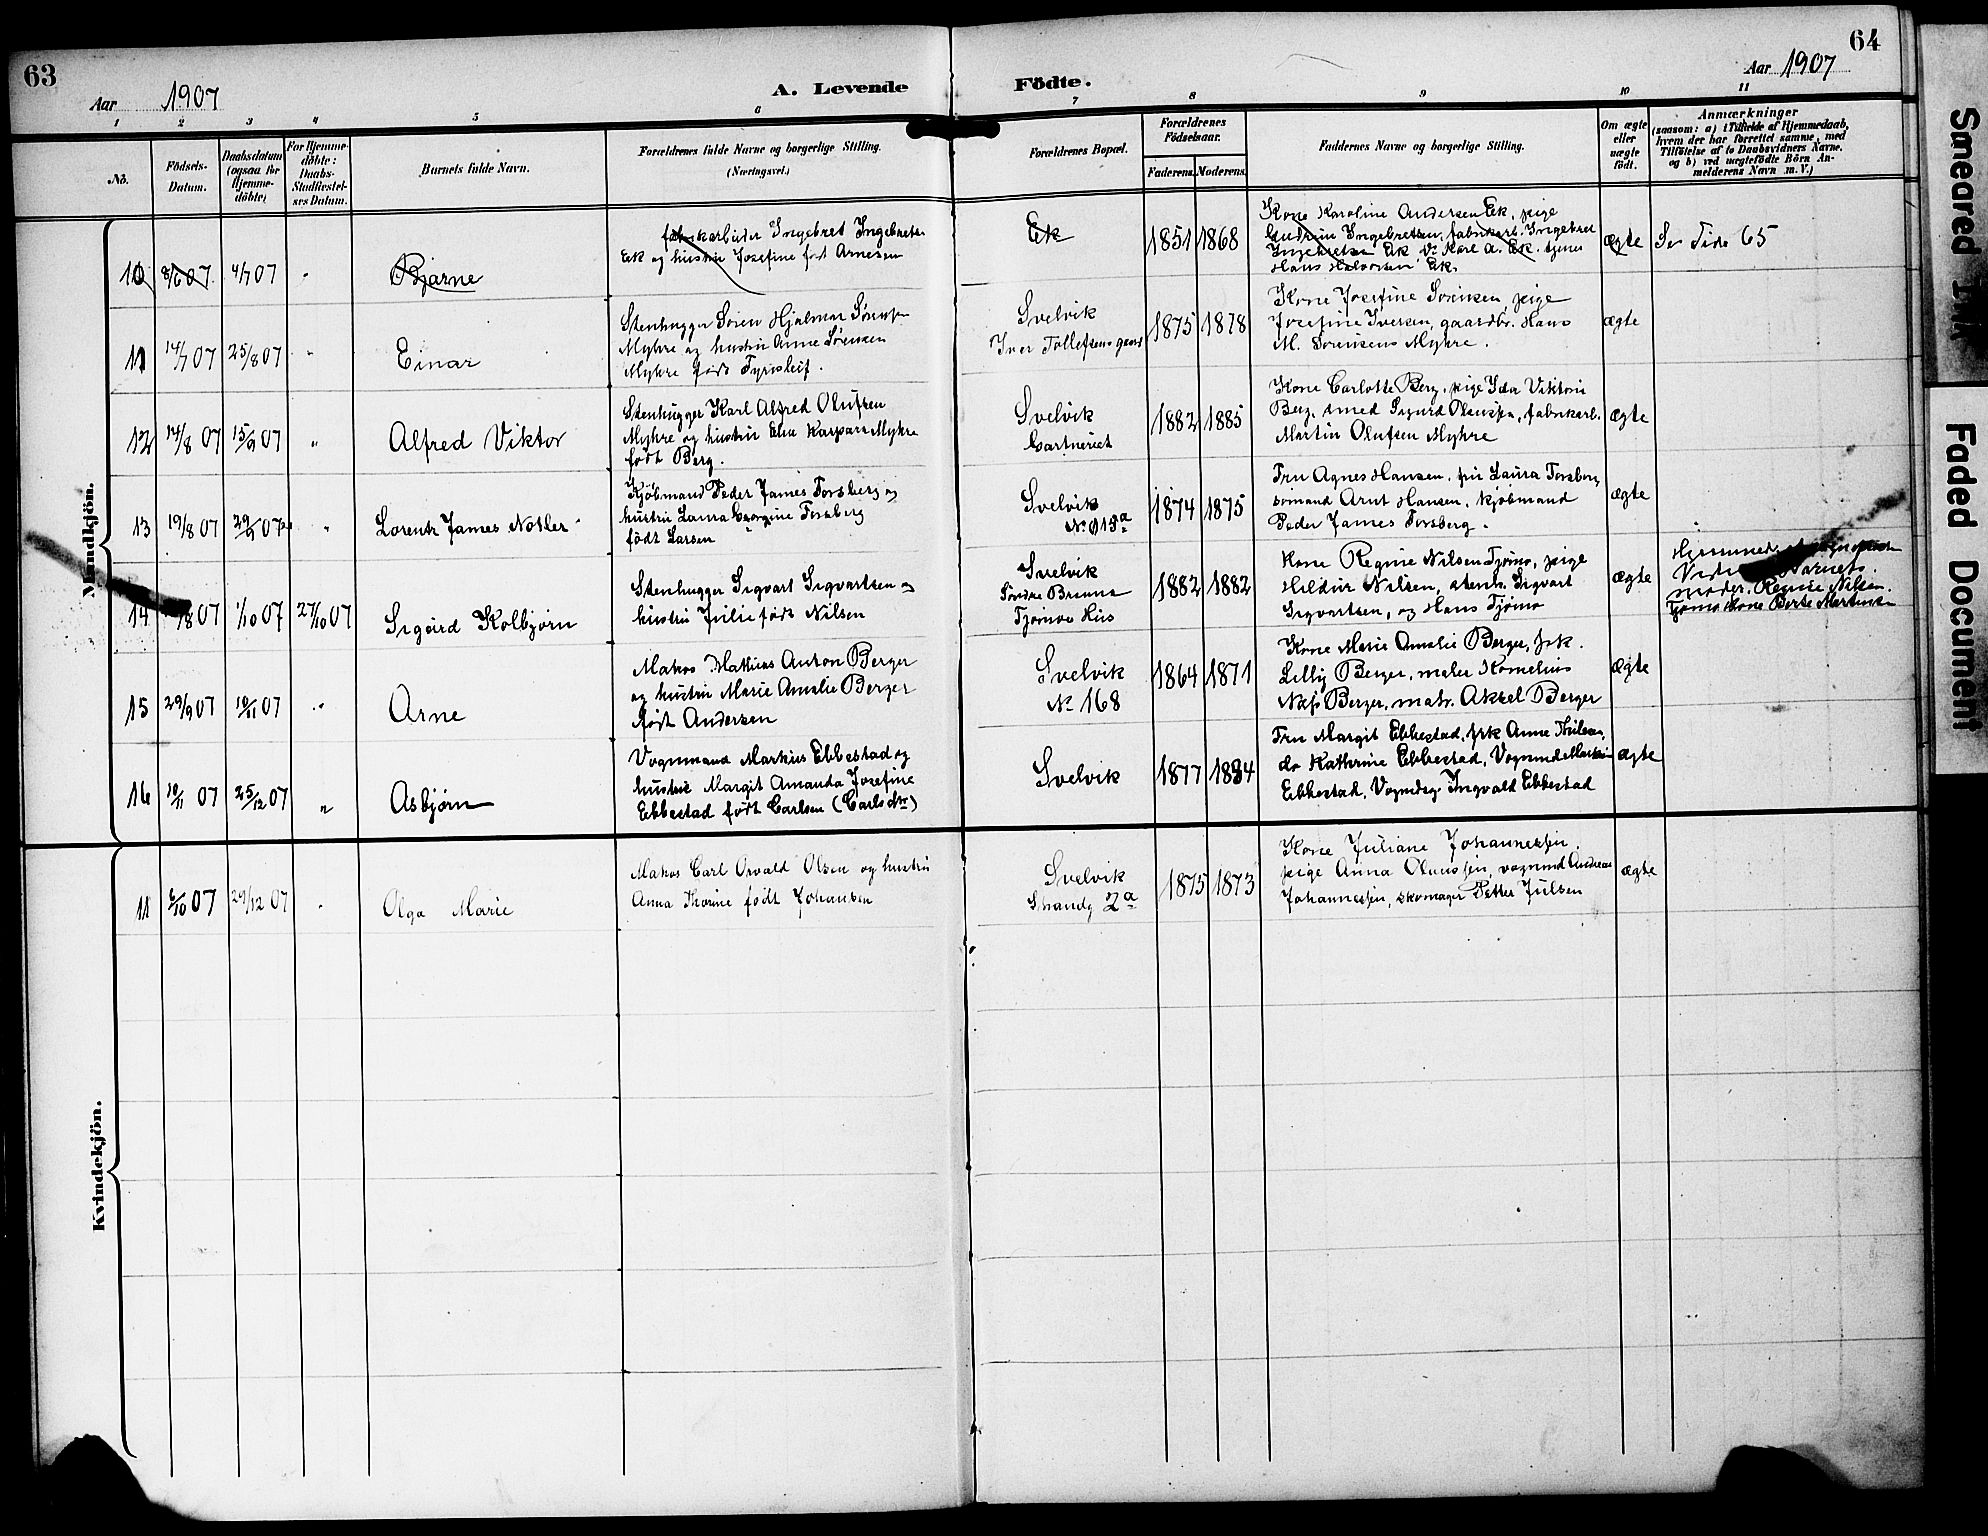 63
64
Aar 1907
A. Levende Födte.
Aar 1907
1 2 3 4 5 6 7 8 9 10 11
No.
Födsels-
Datum.
Daabsdatum
(ogsaa for
Hjemme-
döbte)
For Hjemme-
döbte:
Daabs-
Stadfæstel-
ses Datum.
Barnets fulde Navn.
Forældrenes fulde Navne og borgerlige Stilling.
(Næringsvei.)
Forældrenes Bopæl.
Forældrenes
Födselsaar.
Faderens. Moderens.
Faddernes Navne og borgerlige Stilling.
Om ægte
eller
uægte
födt.
Anmærkninger
(saasom: a) i Tilfælde af Hjemmedaab,
hvem der har forrettet samme, med
Tilføielse af to Daabsvidners Navne.
og b) ved uægtefödte Börn An-
melderens Navn m. V.)
Mandkjön.
10 8/6 07 4/7 07 Bjarne
fabrikarbeider Ingebret Ingebretsen
Ek og hustru Josefine født Arnesen
Ek
1851 1868
Kone Karoline Andersen Ek, pige
Gudrun Ingebretsen, fabrikarb. Ingebret
Ingebretsen Ek Karl A. Ek, tjener
Hans Halvorsen Ek.
ægte
Se Side 65
11 14/7 07 25/8 07 " Einar
Stenhugger Søren Hjalmar Sørensen
Myhre og hustru Anne Sørensen
Myhre født
Svelvik
Iver Tollefsens gaard
1875 1878
Kone Josefine Sørensen, pige
Josefine Iversen, gaardbr. Hans
M. Sørensens Myhre.
ægte
12 14/8 07 15/9 07 " Alfred Viktor
Stenhugger Karl Alfred Olufsen
Myhre og hustru Elsa Kaspara Myhre
født Berg.
Svelvik
Gartneriet
1882 1885
Kone Carlotte Berg, pige Ida Viktoria
Berg, smed Sigurd Olaussen, fabrikarb.
Martin Olufsen Myhre
ægte
13 19/8 07 29/9 07 " Lorentz James Notler
Kjøbmand Peder James Forsberg og
hustru Laura Georgine Forsberg
født Larsen
Svelvik
1874 1875
Fru Agnes Hansen, frk Laura Forsberg,
sømand Arnt Hansen, kjøbmand
Peder James Forsberg.
ægte
14 /8 07 1/10 07 27/10 07 Sigurd Kolbjørn
Stenhugger Sigvart Sigvartsen og
hustru Julie født Nilsen
Svelvik
Søndre Brenna
Tjømøs Hus
1882 1882
Kone Regine Nilsen Tjømø, pige
Hildur Nilsen, stenh. Sigvart
Sigvartsen, og Hans Tjømø
ægte
moder. Regine Nilsen
Tjømø Kone Berte Martinsen
15 29/9 07 10/11 07 " Arne
Matros Mathias Anton Berger
og hustru Marie Amalie Berger
født Andersen
Svelvik
No 168
1864 1871
Kone Marie Amalie Berger, frk.
Lilly Berger, maler Kornelius
Berger, matr. Aksel Berger
ægte
16 10/11 07 25/12 07 " Asbjørn
Vognmand Markus Ebbestad og
hustru Margit Amanda Josefine
Ebbestad født Carlsen (Carlsdtr)
Svelvik
1877 1884
Fru Margit Ebbestad, frk Anne
do Kathrine Ebbestad, Vognmd Markus
Ebbestad, Vogndrg. Ingvald Ebbestad
ægte
Kvindekjön.
11 6/10 07 29/12 07 Olga Marie
Matros Carl Osvald Olsen og hustru
Anna Thorine født Johansen
Svelvik
Strandg 2a
1875 1873
Kone Juliane Johannessen,
pige Anna Olaussen, vognmd Andreas
Johannessen, skomager Petter Julsen
ægte
Smeared Ink
Faded Document